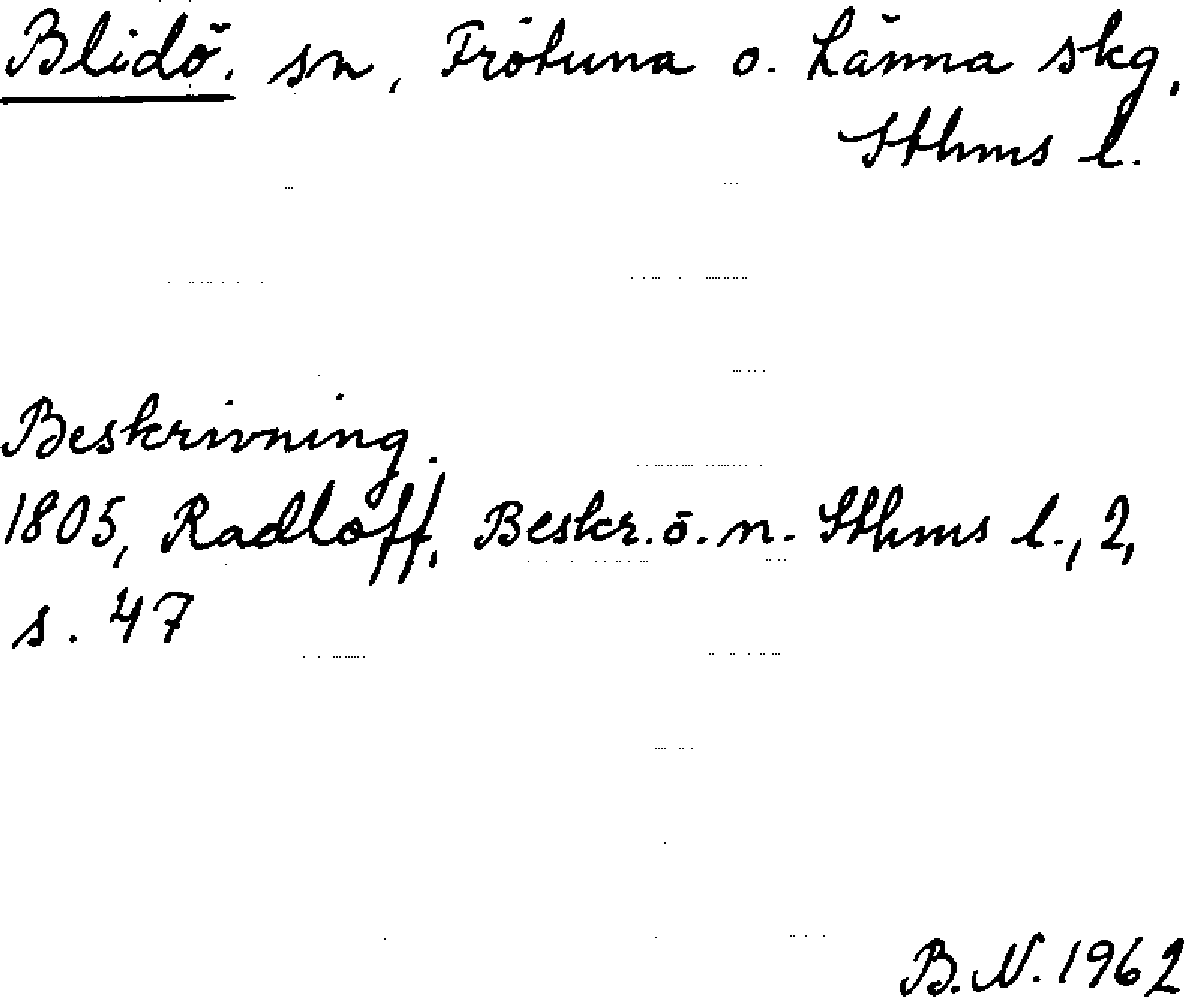 Blidö. sn, Frötuna o. Länna skg,
Sthms l.
Beskrivning.
1805, Radloff, Beskr. ö. n. Sthms l., 2,
s. 47
B. N. 1962